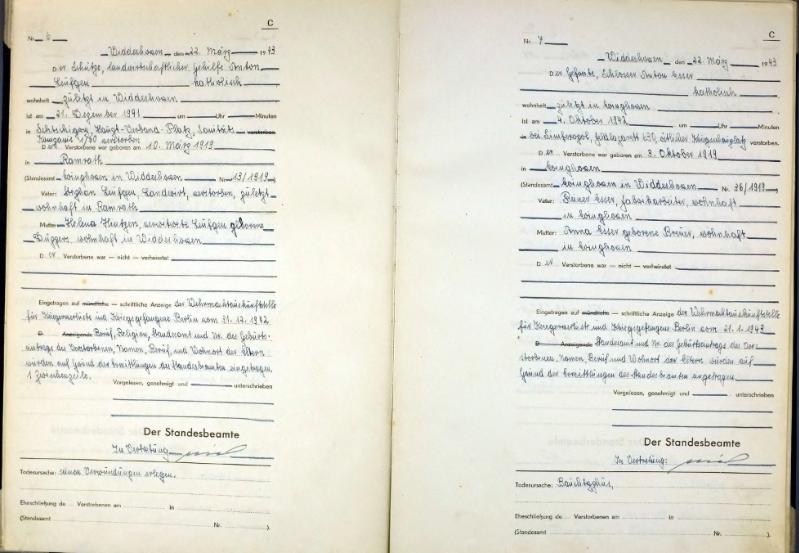 C
Nr. 6
Widdeshoven den 22. März 1943
D er Schütze, landwirtschaftlicher Gehilfe Anton
Leufgen katholisch
wohnhaft zuletzt in Widdeshoven
ist am 21. Dezember 1941 um Uhr Minuten
in Haupt-Verband-Platz, Sanitäts- verstorben
Kompanie 1/30 verstorben
D er Verstorbene war geboren am 10. März 1919
in Ramrath
(Standesamt Hoeningen in Widdeshoven Nr. 13/1919)
Vater: Stephan Leufgen, Landwirt, verstorben, zuletzt
wohnhaft in Ramrath
Mutter: Helena Hentzen, verwitwete Leufgen geborene
Düppers, wohnhaft in Widdeshoven
D er Verstorbene war — nicht — verheiratet
Eingetragen auf mündliche — schriftliche Anzeige der Wehrmachtauskunftstelle
für Kriegerverluste und Kriegsgefangene Berlin vom 31. 12. 1942
D Anzeigende Beruf, Religion, Standesamt und Nr. des Geburts-
eintrags des Verstorbenen, Namen, Beruf, und Wohnort der Eltern
wurden auf Grund der Ermittlungen des Standesbeamten eingetragen.
1
Vorgelesen, genehmigt und unterschrieben
Der Standesbeamte
In Vertretung
Todesursache: seinen Verwundungen erlegen.
Eheschließung de Verstorbenen am in
(Standesamt Nr. ).
C
Nr. 7
Widdeshoven den 22. März 1943
D er Gefreite, Schlosser Anton Esser
katholisch
wohnhaft zuletzt in Hoeningen
ist am 4. Oktober 1942 um Uhr Minuten
in bei Feldlazarett östlicher Kriegsschauplatz verstorben.
D er Verstorbene war geboren am 3. Oktober 1919
in Hoeningen
(Standesamt Hoeningen in Widdeshoven Nr. 36/1919)
Vater: Peter Esser, Fabrikarbeiter, wohnhaft
in Hoeningen
Mutter: Anna Esser geborene Breuer, wohnhaft
in Hoeningen
D er Verstorbene war — nicht — verheiratet
Eingetragen auf mündliche — schriftliche Anzeige der Wehrmachtauskunftstelle
für Kriegerverluste und Kriegsgefangene Berlin vom 21. 1. 1943
D Anzeigende Standesamt und Nr. des Geburtseintrags des Ver-
storbenen, Namen, Beruf und Wohnort der Eltern wurden auf
Grund der Ermittlungen des Standesbeamten eingetragen.
Vorgelesen, genehmigt und unterschrieben
Der Standesbeamte
In Vertretung:
Todesursache: Bauchtyphus,
Eheschließung de Verstorbenen am in
(Standesamt Nr. ).